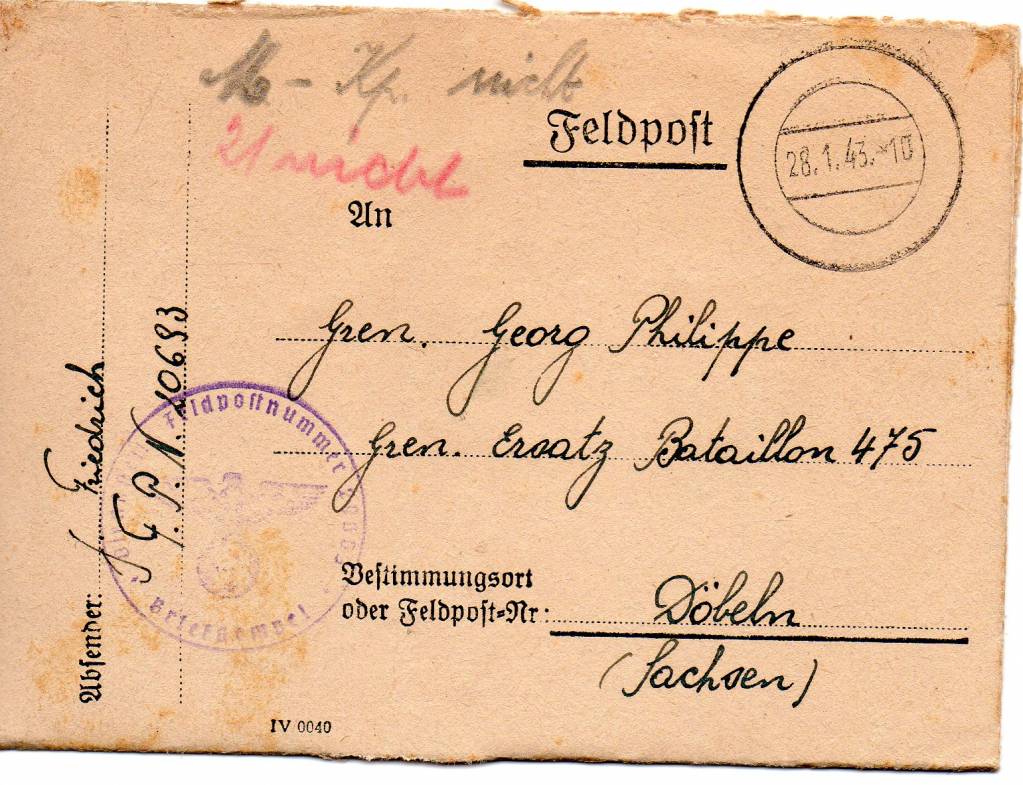 M-Kp. nicht
21 nicht
Feldpost
28.1.43.*10
An
Gren. Georg Philippe
Gren. Ersatz Bataillon 475
Bestimmungsort
oder Feldpost=Nr.: Döbeln
(Sachsen)
Absender: Friedrich
F.P.N. 10683
Feldpostnummer
Briefstempel
IV 0040